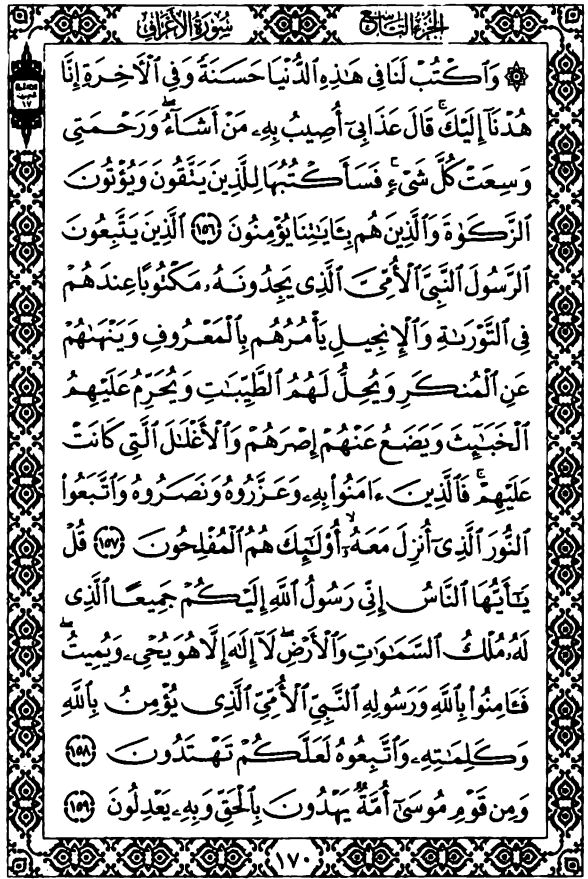 الجزء التاسع
سورة الأعراف
۞ وَٱكْتُبْ لَنَا فِى هَٰذِهِ ٱلدُّنْيَا حَسَنَةً وَفِى ٱلْأَخِرَةِ إِنَّا
هُدْنَآ إِلَيْكَ ۚ قَالَ عَذَابِىٓ أُصِيبُ بِهِۦ مَنْ أَشَآءُ ۖ وَرَحْمَتِى
وَسِعَتْ كُلَّ شَىْءٍ ۚ فَسَأَكْتُبُهَا لِلَّذِينَ يَتَّقُونَ وَيُؤْتُونَ
ٱلزَّكَوٰةَ وَٱلَّذِينَ هُم بِـَٔايَٰتِنَا يُؤْمِنُونَ ١٥٦ ٱلَّذِينَ يَتَّبِعُونَ
ٱلرَّسُولَ ٱلنَّبِىَّ ٱلْأُمِّىَّ ٱلَّذِى يَجِدُونَهُۥ مَكْتُوبًا عِندَهُمْ
فِى ٱلتَّوْرَىٰةِ وَٱلْإِنجِيلِ يَأْمُرُهُم بِٱلْمَعْرُوفِ وَيَنْهَىٰهُمْ
عَنِ ٱلْمُنكَرِ وَيُحِلُّ لَهُمُ ٱلطَّيِّبَٰتِ وَيُحَرِّمُ عَلَيْهِمُ
ٱلْخَبَٰٓئِثَ وَيَضَعُ عَنْهُمْ إِصْرَهُمْ وَٱلْأَغْلَٰلَ ٱلَّتِى كَانَتْ
عَلَيْهِمْ ۚ فَٱلَّذِينَ ءَامَنُوا۟ بِهِۦ وَعَزَّرُوهُ وَنَصَرُوهُ وَٱتَّبَعُوا۟
ٱلنُّورَ ٱلَّذِىٓ أُنزِلَ مَعَهُۥٓ ۙ أُو۟لَٰٓئِكَ هُمُ ٱلْمُفْلِحُونَ ١٥٧ قُلْ
يَٰٓأَيُّهَا ٱلنَّاسُ إِنِّى رَسُولُ ٱللَّهِ إِلَيْكُمْ جَمِيعًا ٱلَّذِى
لَهُۥ مُلْكُ ٱلسَّمَٰوَٰتِ وَٱلْأَرْضِ ۖ لَآ إِلَٰهَ إِلَّا هُوَ يُحْىِۦ وَيُمِيتُ ۖ
فَـَٔامِنُوا۟ بِٱللَّهِ وَرَسُولِهِ ٱلنَّبِىِّ ٱلْأُمِّىِّ ٱلَّذِى يُؤْمِنُ بِٱللَّهِ
وَكَلِمَٰتِهِۦ وَٱتَّبِعُوهُ لَعَلَّكُمْ تَهْتَدُونَ ١٥٨
وَمِن قَوْمِ مُوسَىٰٓ أُمَّةٌ يَهْدُونَ بِٱلْحَقِّ وَبِهِۦ يَعْدِلُونَ ١٥٩
١٧٠